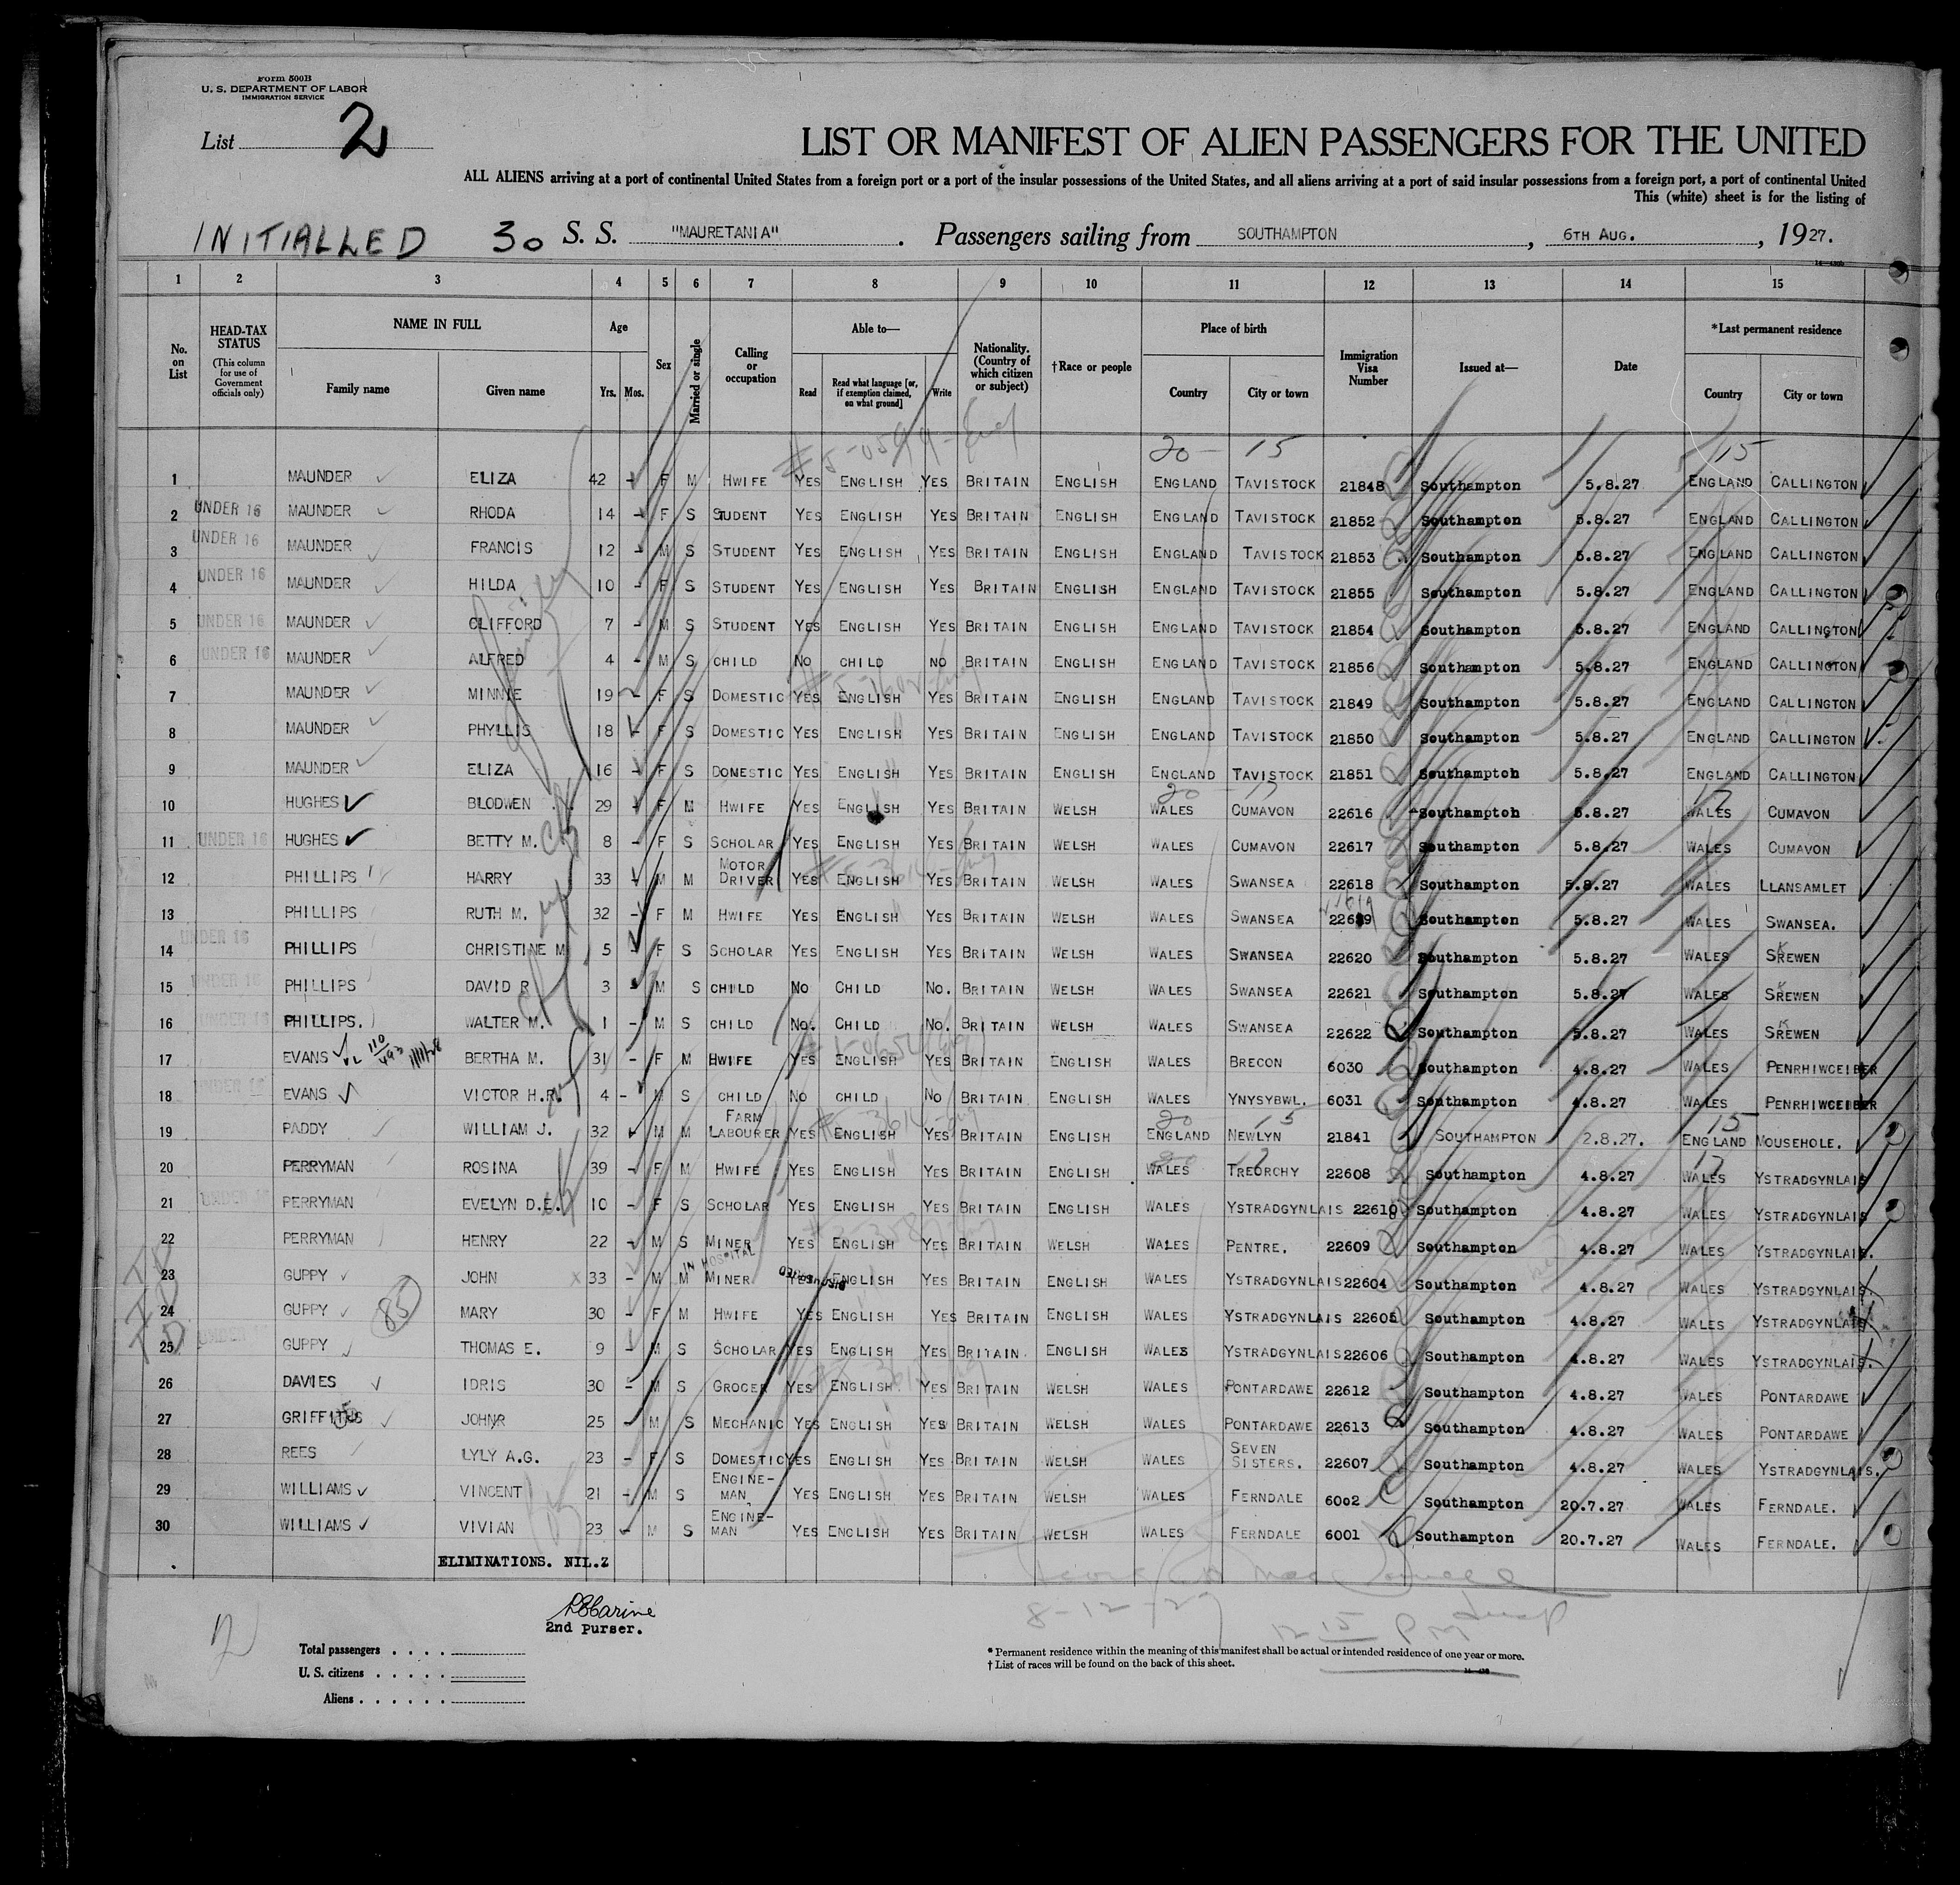 Form 500B
U. S. DEPARTMENT OF LABOR
IMMIGRATION SERVICE
List 2
LIST OR MANIFEST OF ALIEN PASSENGERS FOR THE UNITED
ALL ALIENS arriving at a port of continental United States from a foreign port or a port of the insular possessions of the United States, and all aliens arriving at a port of said insular possessions from a foreign port, a port of continental United
This (white) sheet is for the listing of
INITIALLED 30 S. S. "MAURETANIA". Passengers sailing from SOUTHAMPTON, 6TH AUG., 1927.
1 2 3 4 5 6 7 8 9 10 11 12 13 14 15
No. on List
HEAD-TAX STATUS (This column for use of Government officials only)
NAME IN FULL Family name Given name
Age Yrs. Mos.
Sex
Married or single
Calling or occupation
Able to— Read Read what language [or, if exemption claimed, on what ground] Write
Nationality. (Country of which citizen or subject)
†Race or people
Place of birth Country City or town
Immigration Visa Number
Issued at—
Date
*Last permanent residence Country City or town
20 15 15
1 MAUNDER ELIZA 42 - F M HWIFE YES ENGLISH YES BRITAIN ENGLISH ENGLAND TAVISTOCK 21848 Southampton 5.8.27 ENGLAND CALLINGTON
2 UNDER 16 MAUNDER RHODA 14 - F S STUDENT YES ENGLISH YES BRITAIN ENGLISH ENGLAND TAVISTOCK 21852 Southampton 5.8.27 ENGLAND CALLINGTON
3 UNDER 16 MAUNDER FRANCIS 12 - M S STUDENT YES ENGLISH YES BRITAIN ENGLISH ENGLAND TAVISTOCK 21853 Southampton 5.8.27 ENGLAND CALLINGTON
4 UNDER 16 MAUNDER HILDA 10 - F S STUDENT YES ENGLISH YES BRITAIN ENGLISH ENGLAND TAVISTOCK 21855 Southampton 5.8.27 ENGLAND CALLINGTON
5 UNDER 16 MAUNDER CLIFFORD 7 - M S STUDENT YES ENGLISH YES BRITAIN ENGLISH ENGLAND TAVISTOCK 21854 Southampton 5.8.27 ENGLAND CALLINGTON
6 UNDER 16 MAUNDER ALFRED 4 - M S CHILD NO CHILD NO BRITAIN ENGLISH ENGLAND TAVISTOCK 21856 Southampton 5.8.27 ENGLAND CALLINGTON
7 MAUNDER MINNIE 19 - F S DOMESTIC YES ENGLISH YES BRITAIN ENGLISH ENGLAND TAVISTOCK 21849 Southampton 5.8.27 ENGLAND CALLINGTON
8 MAUNDER PHYLLIS 18 - F S DOMESTIC YES ENGLISH YES BRITAIN ENGLISH ENGLAND TAVISTOCK 21850 Southampton 5.8.27 ENGLAND CALLINGTON
9 MAUNDER ELIZA 16 - F S DOMESTIC YES ENGLISH YES BRITAIN ENGLISH ENGLAND TAVISTOCK 21851 Southampton 5.8.27 ENGLAND CALLINGTON
10 HUGHES BLODWEN 29 - F M HWIFE YES ENGLISH YES BRITAIN WELSH WALES CUMAVON 22616 Southampton 5.8.27 WALES CUMAVON
11 UNDER 16 HUGHES BETTY M. 8 - F S SCHOLAR YES ENGLISH YES BRITAIN WELSH WALES CUMAVON 22617 Southampton 5.8.27 WALES CUMAVON
12 PHILLIPS HARRY 33 - M M MOTOR DRIVER YES ENGLISH YES BRITAIN WELSH WALES SWANSEA 22618 Southampton 5.8.27 WALES LLANSAMLET
13 PHILLIPS RUTH M. 32 - F M HWIFE YES ENGLISH YES BRITAIN WELSH WALES SWANSEA 22619 Southampton 5.8.27 WALES SWANSEA.
14 UNDER 16 PHILLIPS CHRISTINE M 5 - F S SCHOLAR YES ENGLISH YES BRITAIN WELSH WALES SWANSEA 22620 Southampton 5.8.27 WALES SKEWEN
15 UNDER 16 PHILLIPS DAVID R 3 - M S CHILD NO CHILD NO. BRITAIN WELSH WALES SWANSEA 22621 Southampton 5.8.27 WALES SKEWEN
16 UNDER 16 PHILLIPS. WALTER M. 1 - M S CHILD NO. CHILD NO. BRITAIN WELSH WALES SWANSEA 22622 Southampton 5.8.27 WALES SKEWEN
17 EVANS BERTHA M. 31 - F M HWIFE YES ENGLISH YES BRITAIN ENGLISH WALES BRECON 6030 Southampton 4.8.27 WALES PENRHIWCEIBER
18 UNDER 16 EVANS VICTOR H.R. 4 - M S CHILD NO CHILD NO BRITAIN ENGLISH WALES YNYSYBWL. 6031 Southampton 4.8.27 WALES PENRHIWCEIBER
19 PADDY WILLIAM J. 32 - M M FARM LABOURER YES ENGLISH YES BRITAIN ENGLISH ENGLAND NEWLYN 21841 SOUTHAMPTON 2.8.27. ENGLAND MOUSEHOLE.
20 PERRYMAN ROSINA 39 - F M HWIFE YES ENGLISH YES BRITAIN ENGLISH WALES TREORCHY 22608 Southampton 4.8.27 WALES YSTRADGYNLAIS
21 UNDER 16 PERRYMAN EVELYN D.E. 10 - F S SCHOLAR YES ENGLISH YES BRITAIN ENGLISH WALES YSTRADGYNLAIS 22610 Southampton 4.8.27 WALES YSTRADGYNLAIS
22 PERRYMAN HENRY 22 - M S MINER YES ENGLISH YES BRITAIN WELSH WALES PENTRE. 22609 Southampton 4.8.27 WALES YSTRADGYNLAIS.
IN HOSPITAL
23 GUPPY JOHN 33 - M M MINER YES ENGLISH YES BRITAIN ENGLISH WALES YSTRADGYNLAIS 22604 Southampton 4.8.27 WALES YSTRADGYNLAIS.
24 GUPPY MARY 30 - F M HWIFE YES ENGLISH YES BRITAIN ENGLISH WALES YSTRADGYNLAIS 22605 Southampton 4.8.27 WALES YSTRADGYNLAIS
25 UNDER GUPPY THOMAS E. 9 - M S SCHOLAR YES ENGLISH YES BRITAIN. ENGLISH WALES YSTRADGYNLAIS 22606 Southampton 4.8.27 WALES YSTRADGYNLAIS.
26 DAVIES IDRIS 30 - M S GROCER YES ENGLISH. YES BRITAIN WELSH WALES PONTARDAWE 22612 Southampton 4.8.27 WALES PONTARDAWE
27 GRIFFITHS JOHN 25 - M S MECHANIC YES ENGLISH YES BRITAIN WELSH WALES PONTARDAWE 22613 Southampton 4.8.27 WALES PONTARDAWE
28 REES LYLY A.G. 23 - F S DOMESTIC YES ENGLISH YES BRITAIN WELSH WALES SEVEN SISTERS. 22607 Southampton 4.8.27 WALES YSTRADGYNLAIS.
29 WILLIAMS VINCENT 21 - M S ENGINE-MAN YES ENGLISH YES BRITAIN WELSH WALES FERNDALE 6002 Southampton 20.7.27 WALES FERNDALE.
30 WILLIAMS VIVIAN 23 - M S ENGINE-MAN YES ENGLISH YES BRITAIN WELSH WALES FERNDALE 6001 Southampton 20.7.27 WALES FERNDALE.
ELIMINATIONS. NIL.Z
2nd Purser.
8-12-27
12 15 PM
2
Total passengers
U. S. citizens
Aliens
* Permanent residence within the meaning of this manifest shall be actual or intended residence of one year or more.
† List of races will be found on the back of this sheet.